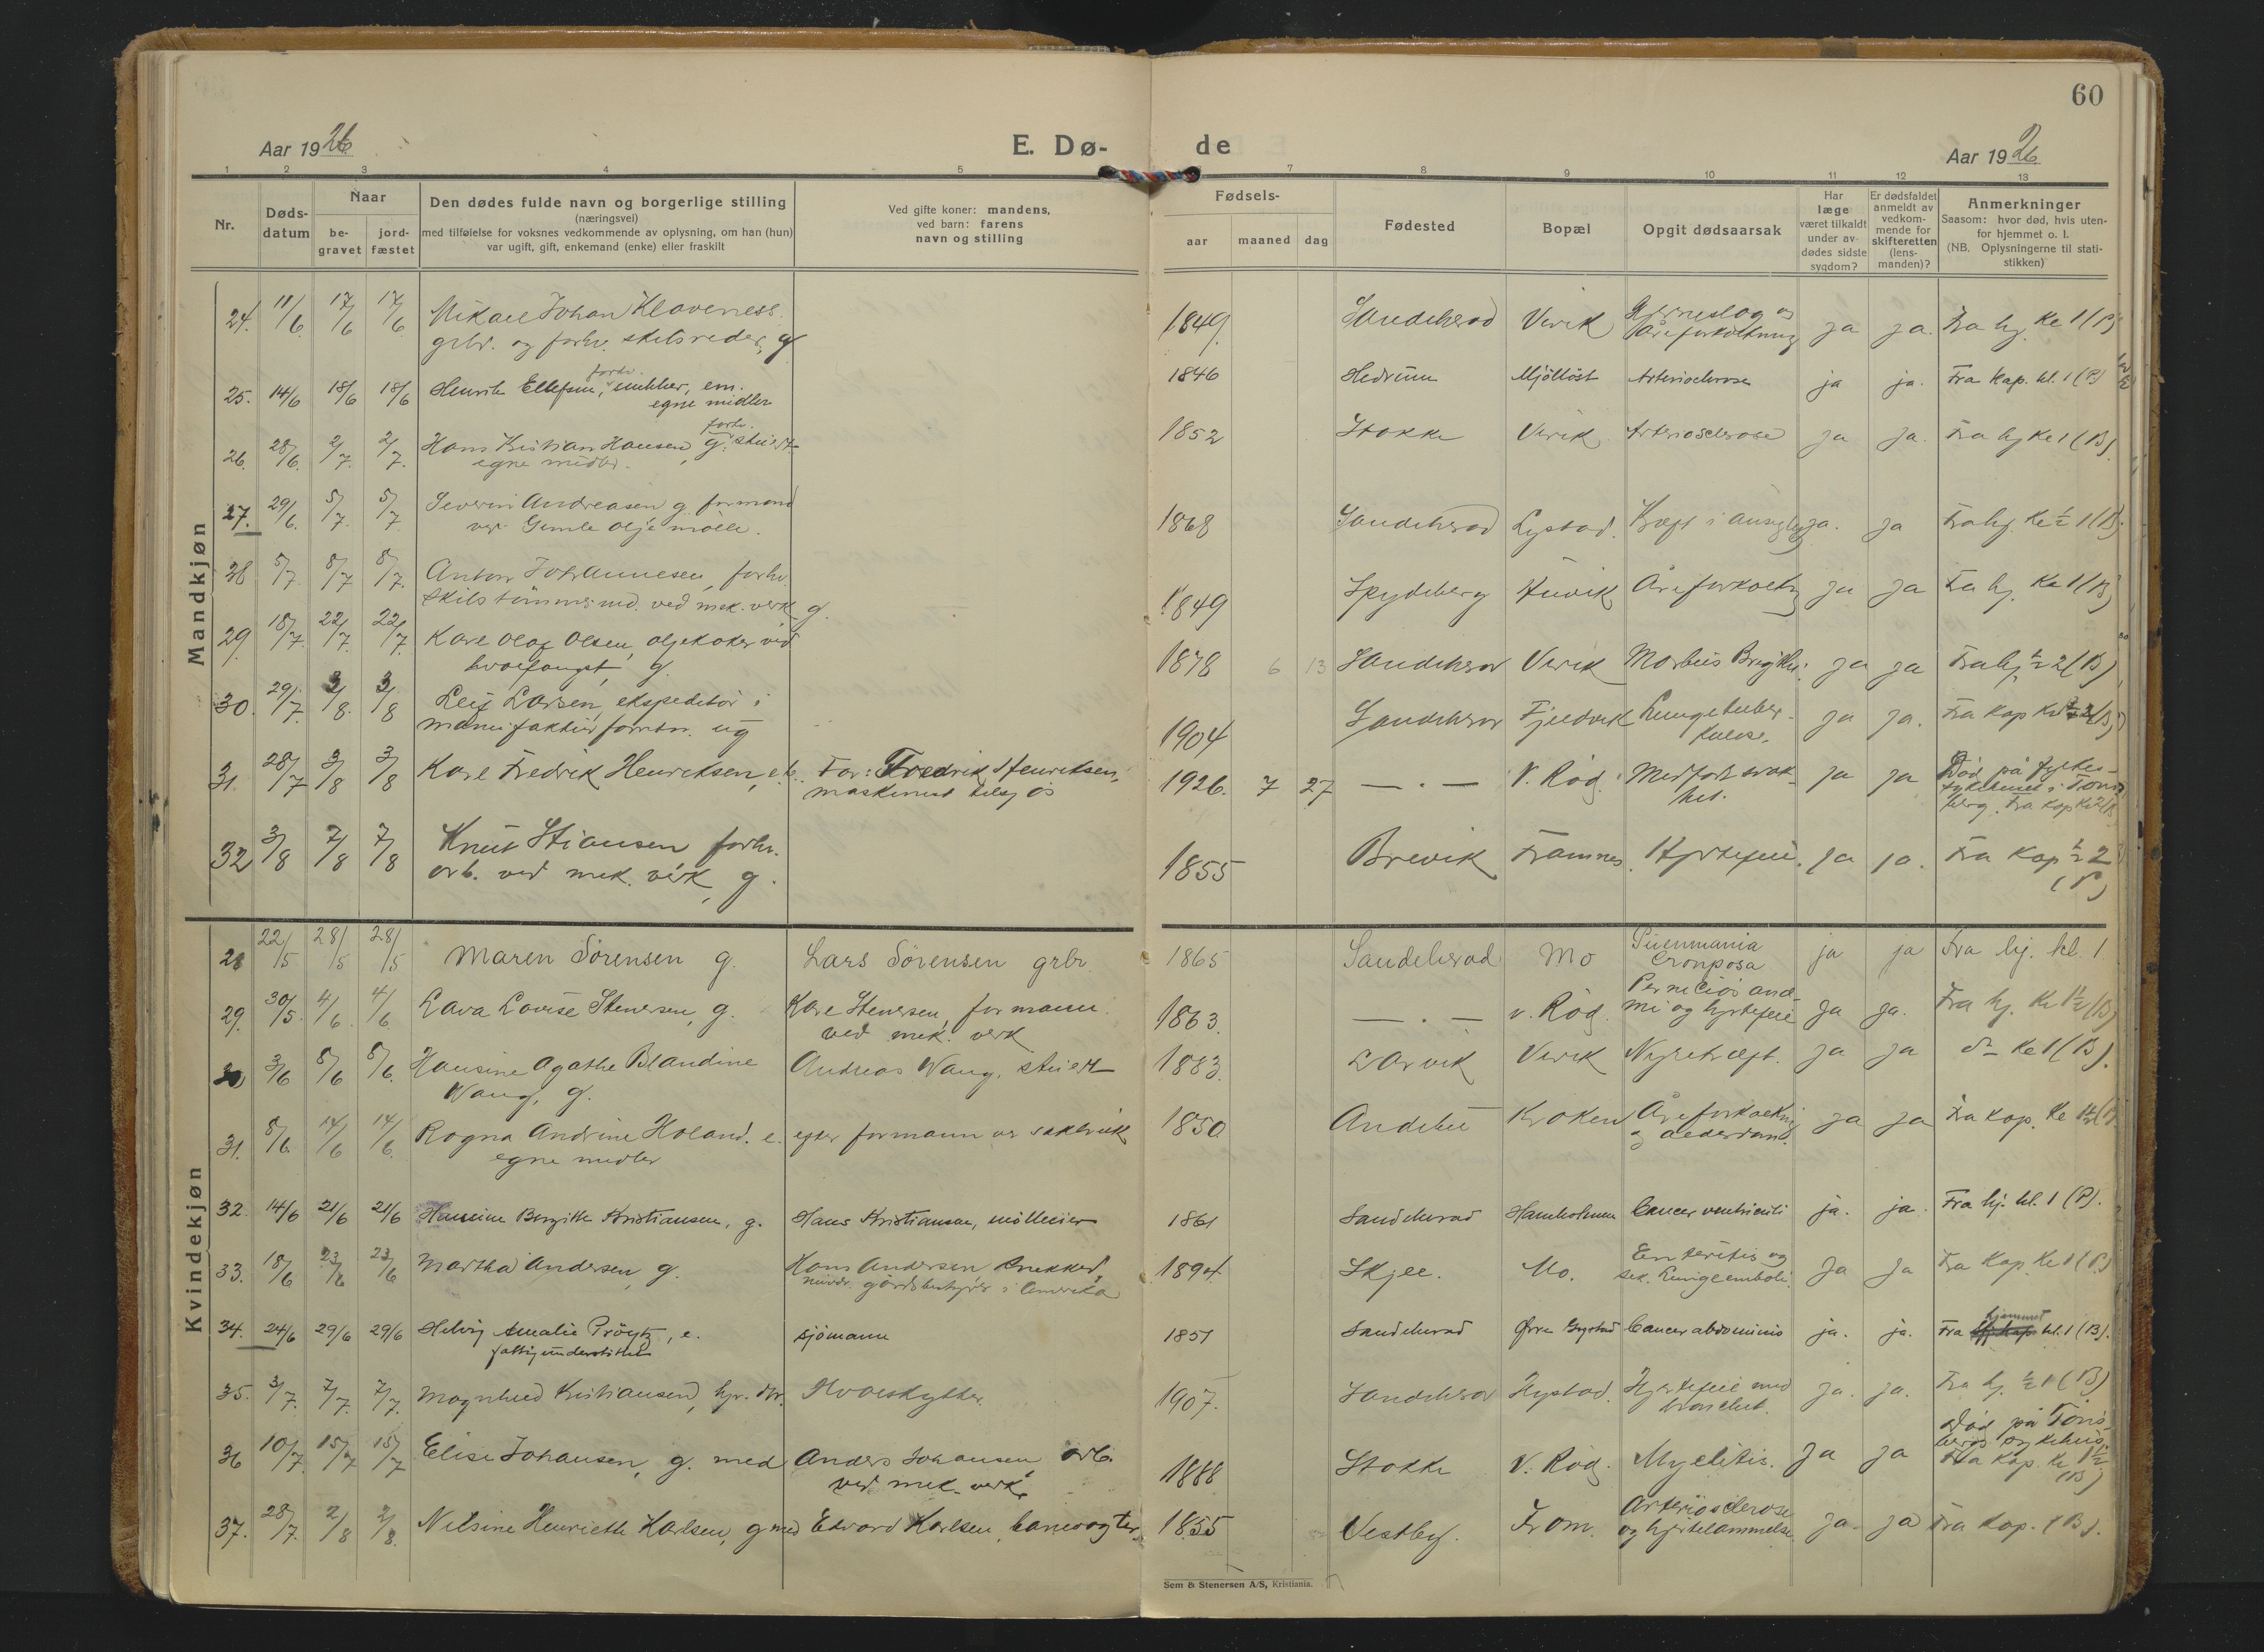 60
Aar 1926
E. Dø-
de
Aar 1926
1 2 3 4 5 7 8 9 10 11 12 13
Nr.
Døds-
datum
Naar
be-
gravet
jord-
fæstet
Den dødes fulde navn og borgerlige stilling
(næringsvei)
med tilføielse for voksnes vedkommende av oplysning, om han (hun)
var ugift, gift, enkemand (enke) eller fraskilt
Ved gifte koner: mandens,
ved barn: farens
navn og stilling
Fødsels-
aar maaned dag
Fødested
Bopæl
Opgit dødsaarsak
Har
læge
været tilkaldt
under av-
dødes sidste
sygdom?
Er dødsfaldet
anmeldt av
vedkom-
mende for
skifteretten
(lens-
manden)?
Anmerkninger
Saasom: hvor død, hvis uten-
for hjemmet o. l.
(NB. Oplysningerne til stati-
stikken)
Mandkjøn
24. 11/6 17/6 17/6 Mikael Johan Klaveness 1849 Sandeherad Virik Hjerneslag og ja ja. Fra hj. Kl 1 (P)
grbr. og forhv. skibsreder, g Åreforkalkning
25. 14/6 18/6 18/6 Henrik Ellefsen, forhv. snekker, em. 1846 Hedrum Mjöllöst Arteriosclerose ja ja. Fra Kap. kl. 1 (P)
egne midler
26. 28/6 2/7 2/7 Hans Kristian Hansen, g. forhv. stuert 1852 Stokke Virik Arteriosclerose ja ja. Fra hj kl 1 (B)
egne midler.
27. 29/6 5/7 5/7 Severin Andreasen g. formand 1868 Sandeherad Lystad. Kræft i ja. ja Fra hj. Kl 1/2 1 (B)
ved Gimle Olje mölle.
28 5/7 8/7 8/7 Anton Johannesen, forhv. 1849 Spydeberg Huvik Åreforkalkn. ja ja Fra hj. Kl 1 (B)
skibstömmermd. ved mek. verk g.
29 18/7 22/7 22/7 Karl Olaf Olsen, oljekoker ved 1878 6 13 Sandeherad Virik Morbus Brigthii. ja ja Fra hj 1/2 2 (B)
hvalfangst, g.
30. 29/7 3/8 3/8 Leif Larsen, ekspeditör i 1904 Sandeherad Fjeldvik Lungetuber- ja ja. Fra Kap
manufakturforretn. ug kulose.
31. 28/7 3/8 3/8 Karl Fredrik Henriksen, Far: Fredrik Henriksen, 1926. 7 27 — . — V. Röd. Medfödt svak- ja ja Död på fylkes-
maskinist tilsjös het. sykehuset i Töns
berg. Fra Kap
32 3/8 7/8 7/8 Knut Stiansen forhv. 1855 Brevik Framnes Hjertefeil. ja ja. Fra Kap 1/2 2
arb. ved mek. verk, g. (P)
Kvindekjøn
28 22/5 28/5 28/5 Maren Sörensen g. Lars Sörensen grbr. 1865 Sandeherad Mo Pneumania ja ja Fra hj. kl. 1
Crouposa
29. 30/5. 4/6 4/6 Lava Lovise Stenersen, g. Karl Stenersen, formann 1863. — . — v. Röd. Perneciös anæ- ja ja. Fra hj. Kl 1 1/2 (B)
ved mek. verk mi og hjertefeil
30 3/6 8/6 8/6 Hansine Agathe Blandine Andreas Wang, stuert 1883. Larvik Virik Nyrekræft. ja ja do Kl 1 (B).
Wang, g.
31. 8/6 14/6 14/6 Ragna Andrine Holand. e. efter formann ve sakbruk 1850 Andebu Kroken Åreforkalkn. ja ja Fra Kap. Kl
egne midler og alderdom.
32. 14/6 21/6 21/6 Hansine Bergitte Kristiansen, g. Hans Kristiansen, möllerier 1861 Sandeherad Hamholmen Cancer ventriculi ja. ja. Fra hj. kl. 1 (P).
33. 18/6 23/6 23/6 Martha Andersen, g. Hans Andersen snekker, 1894. Skjee. Mo. Enteritis og ja ja Fra Kap. Kl 1 (P.)
nuvær. gårdsbestyrer i Amerika sek. Lungeemboli.
34. 24/6 29/6 29/6 Helvig Amalie Pröytz, e. sjömann 1851 Sandeherad Övre Gogstad Cancer abdominis ja. ja. Fra hjemmet kl. 1 (B).
fattigunderstöttet
35. 3/7. 7/7. 7/7. Magnhild Kristiansen, hj. dtr. Hvalskytter. 1907. Sandeherad Hystad. Hjertefeil med ja. ja. Fra hj. 1/2 1 (B)
bronchit.
36 10/7. 15/7 15/7 Elise Johansen, g. med Anders Johansen, arb. 1888 Stokke V. Röd. Myelitis. ja ja Död på Töns-
ved mek. verk. bergs sykehus.
Fra Kap. Kl 1 1/2
(B)
37. 28/7 2/8 2/8. Nilsine Henriette Karlsen, g med Edvard Karlsen, banevogter 1855 Vestby. Fram. Arteriosclerose ja. ja Fra Kap. 1 (B).
og hjertelammelse
Sem & Stenersen A/S, Kristiania.